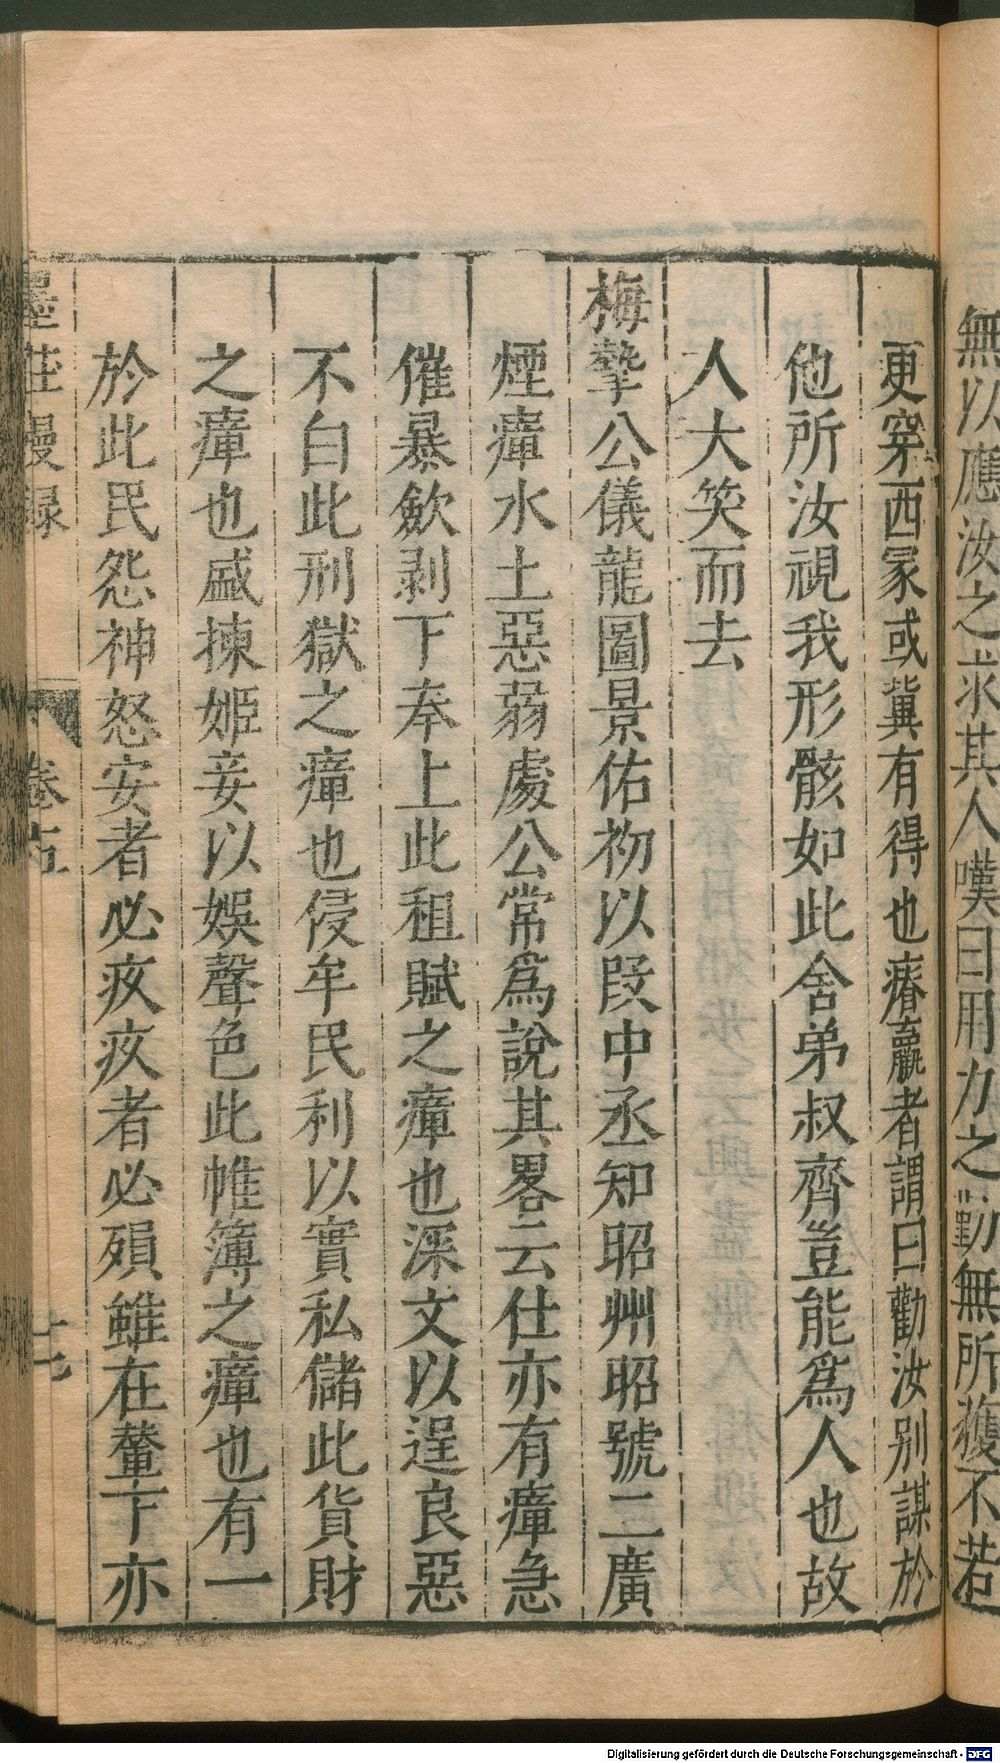 無以應汝之求其人嘆曰用力之勤無所獲不若
更穿西冢或冀有得也瘠羸者謂曰勸汝别謀於
他所汝視我形骸如此舍弟叔齊豈能爲人也故
人大笑而去
梅摯公儀龍圖景佑初以殿中丞知昭州昭號二廣
煙瘴水土惡弱處公常爲說其畧云仕亦有瘴急
催暴歛剥下奉上此租賦之瘴也深文以逞良惡
不白此刑獄之瘴也侵牟民利以實私儲此貨財
之瘴也盛揀姬妾以娯聲色此帷簿之瘴也有一
於此民怨神怒安者必疾疾者必殞雖在輦下亦
墨莊漫録
卷
十七
Digitalisierung gefördert durch die Deutsche Forschungsgemeinschaft - DFG